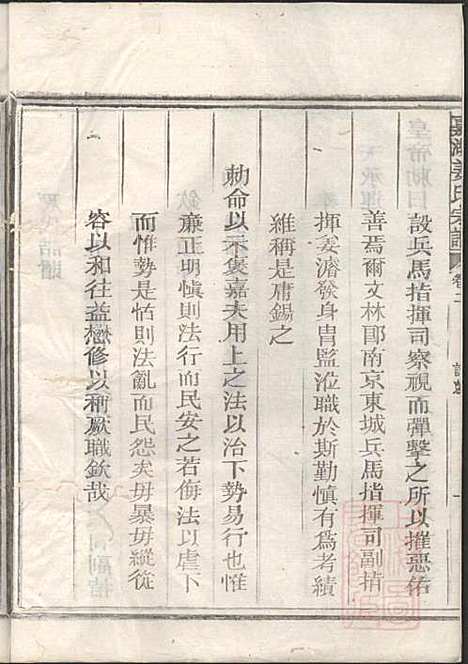 嘉湖姜氏宗譜
卷二
設兵馬指揮司察視而彈擊之所以摧惡佑
善焉爾文林郎南京東城兵馬指揮司副指
揮姜濬發身胄監涖職於斯勤慎有為考績
維稱是庸錫之
勅命以示褒嘉夫用上之法以治下勢易行也惟
廉正明慎則法行而民安之若侮法以虐下
而惟勢是怙則法亂而民怨矣毋暴毋縱從
容以和往益懋修以稱厥職欽哉